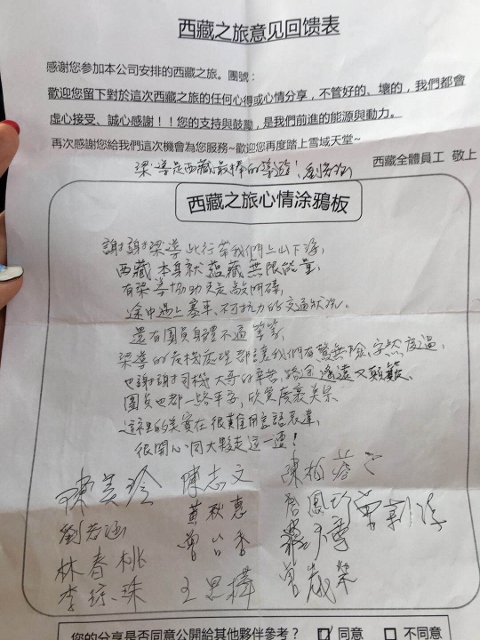 西藏之旅意见回馈表
感谢您参加本公司安排的西藏之旅。團號：
歡迎您留下對於這次西藏之旅的任何心得或心情分享，不管好的、壞的，我們都會
虛心接受、誠心感謝！！您的支持與鼓勵，是我們前進的能源與動力。
再次感謝您給我們這次機會為您服務~歡迎您再度踏上雪域天堂~
西藏全體員工 敬上
梁導是西藏最棒的導遊！劉若涵
西藏之旅心情涂鴉板
謝謝梁導此行帶我們上山下海，
西藏本身就蘊藏無限能量，
有梁導協助更是
途中遇上塞車、不可抗力的交通狀況，
還有團員身體不適等等，
梁導的危機處理都讓我們有驚無險、安然度過，
也謝謝司機大哥的辛苦，路途遙遠又顛簸，
團員也都一路平安，欣賞廣袤美景
這裡的美實在很難用言語表達，
很開心同大夥走這一遭！
陳美玲 陳志文 陳柏
劉若涵 黃秋惠
林春桃
李 珠 王思樺 曾歲榮
您的分享是否同意公開給其他夥伴參考？ ☑ 同意 □ 不同意